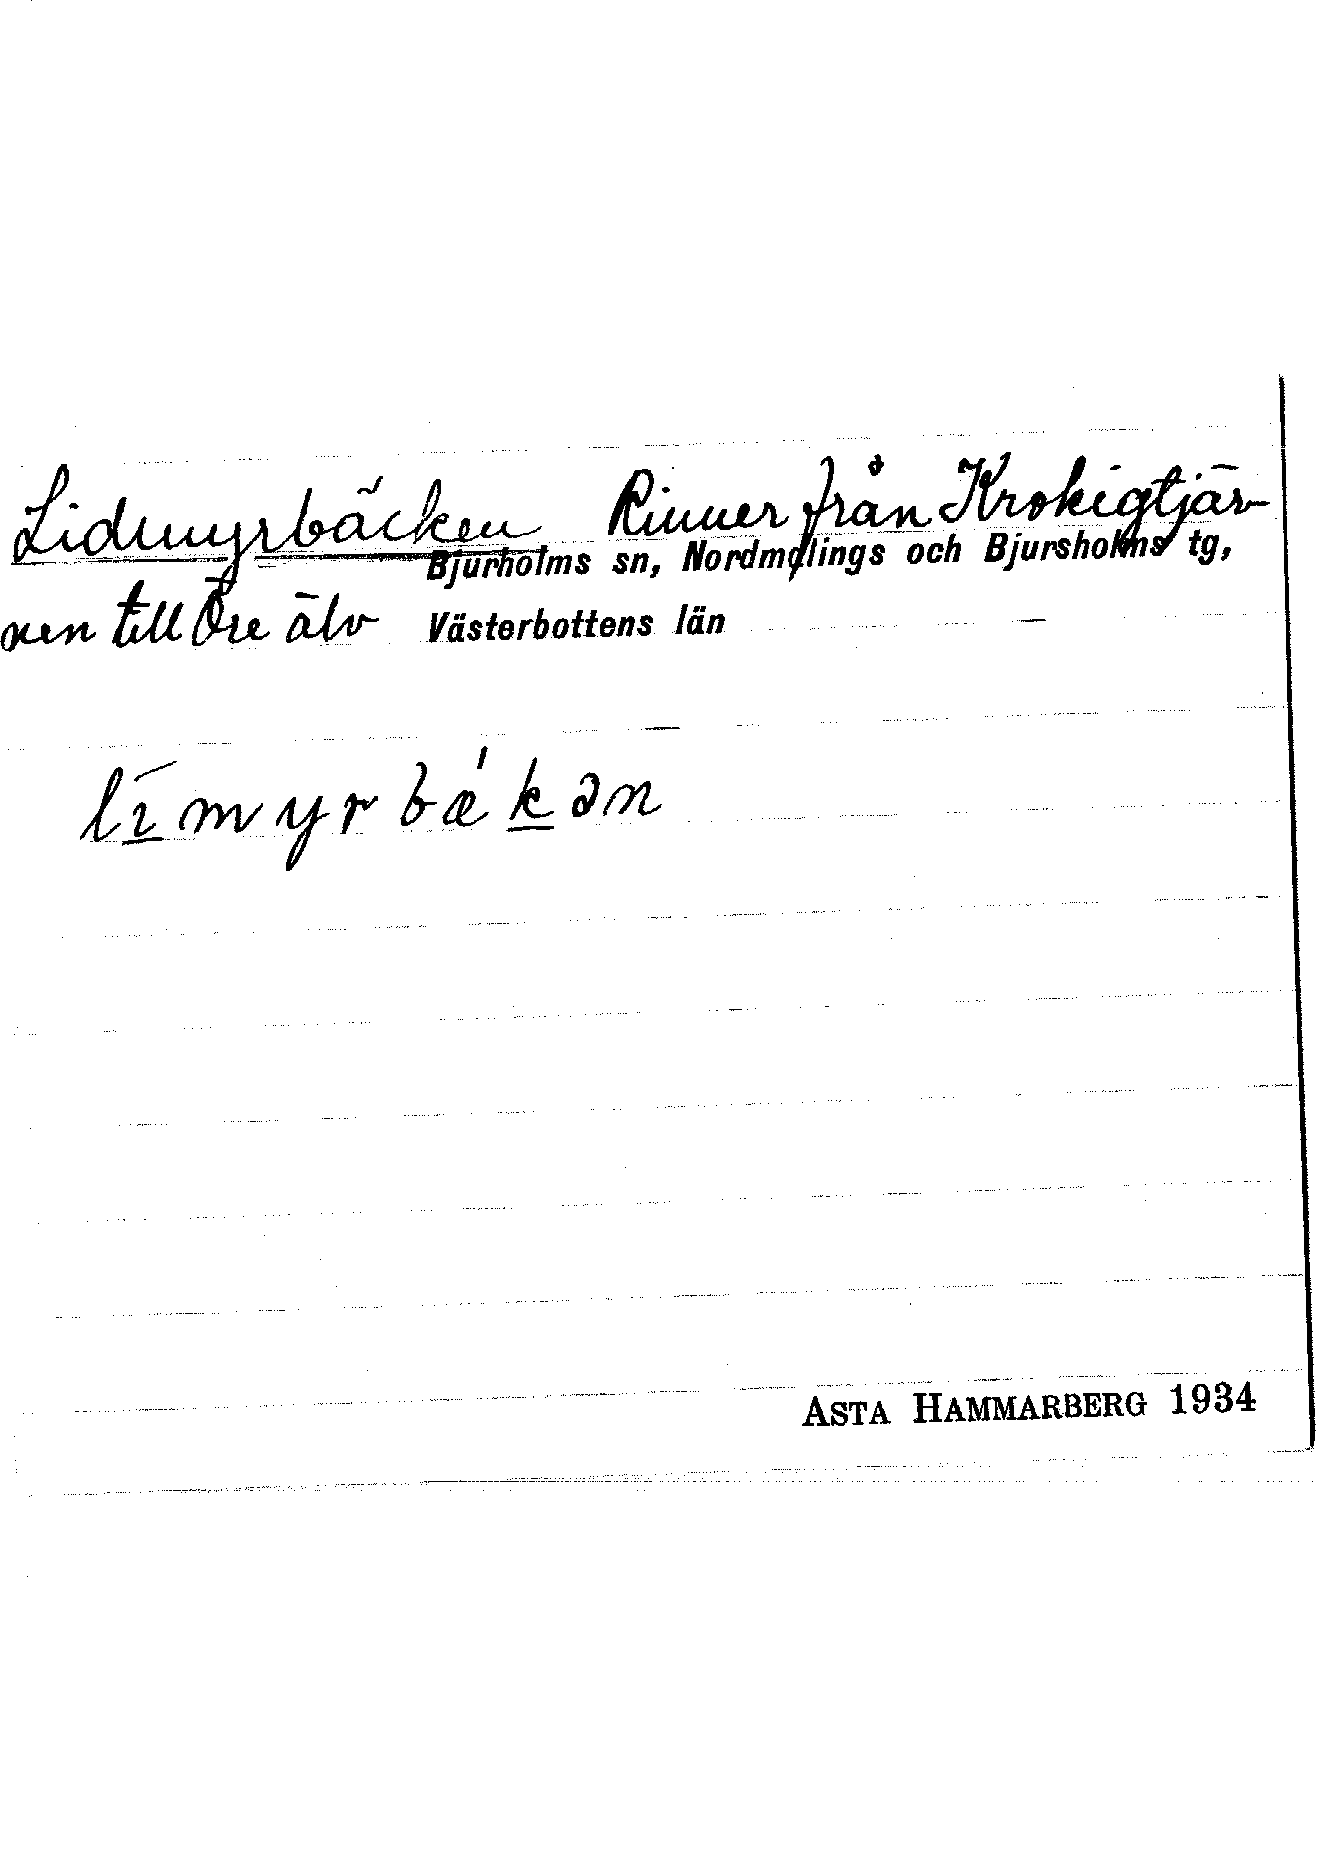 Lidmyrbäcken Rinner från Krokigtjär-
Bjurholms sn, Nordmalings och Bjursholms tg,
nen till Öre älv Västerbottens län
līmyrbǽkən
ASTA HAMMARBERG 1934